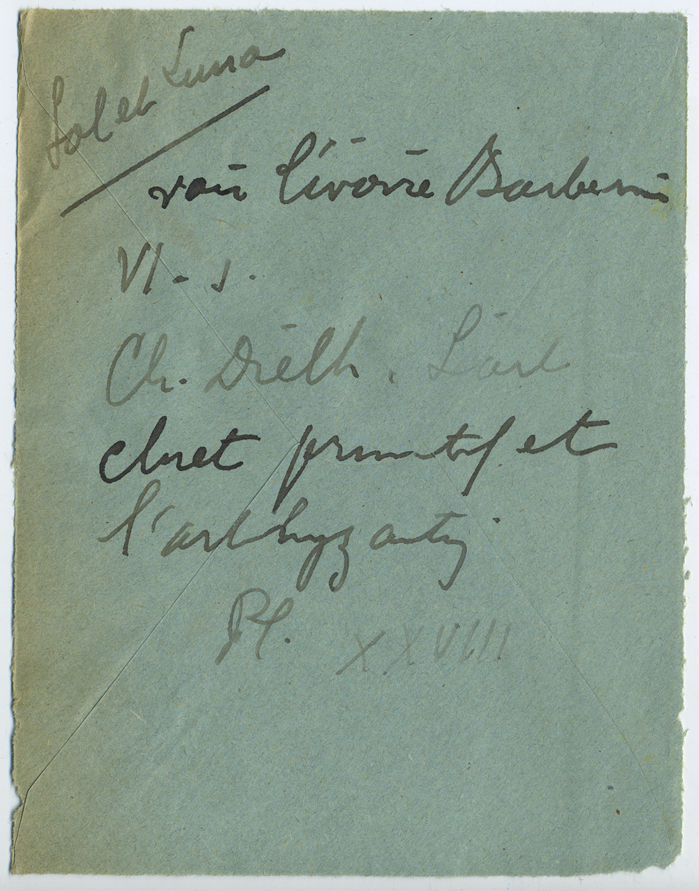 Sol et Luna
voir l'ivoire Barberini
VI. s.
Ch. Diehl. L'art
chret primitif et
l'art byzantin
Pl. XXVIII